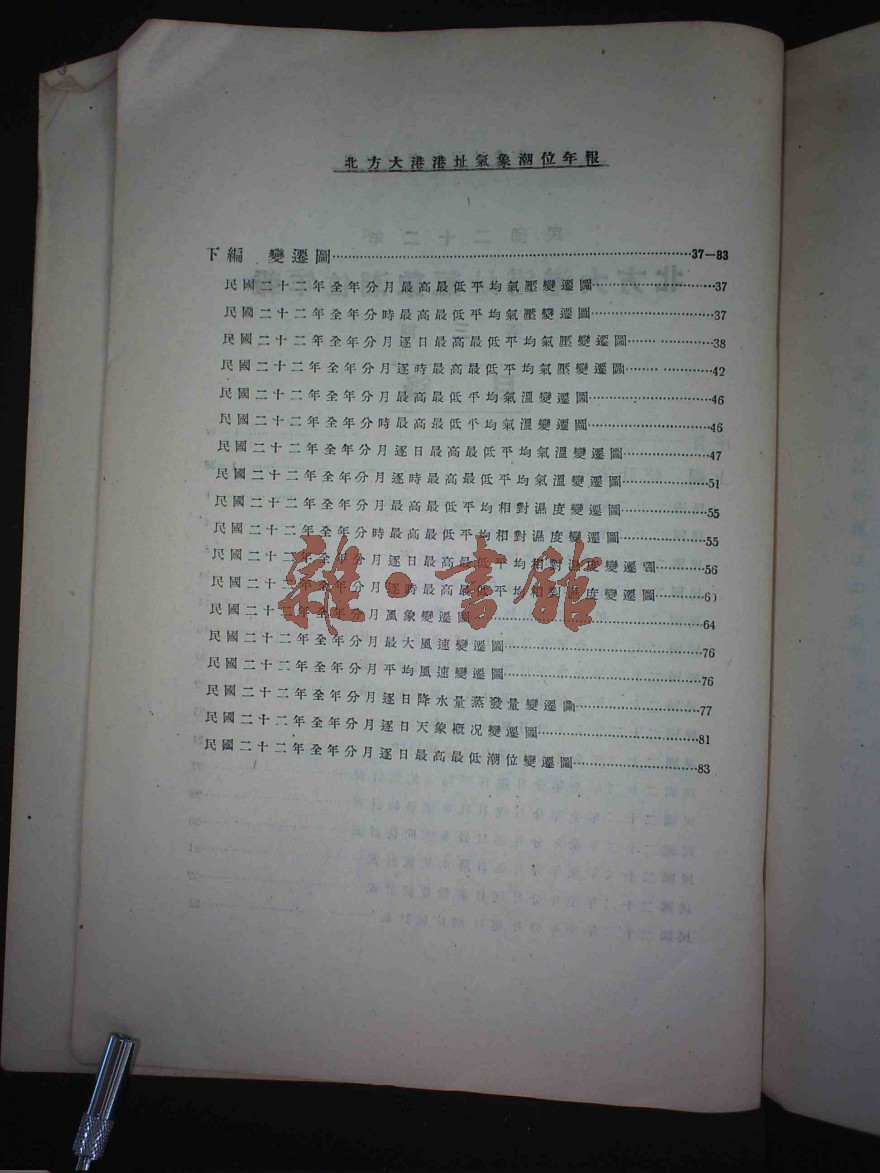 北方大港港址氣象潮位年報
下編 變遷圖……37—83
民國二十二年全年分月最高最低平均氣壓變遷圖……37
民國二十二年全年分時最高最低平均氣壓變遷圖……37
民國二十二年全年分月逐日最高最低平均氣壓變遷圖……38
民國二十二年全年分月逐時最高最低平均氣壓變遷圖……42
民國二十二年全年分月最高最低平均氣溫變遷圖……46
民國二十二年全年分時最高最低平均氣溫變遷圖……46
民國二十二年全年分月逐日最高最低平均氣溫變遷圖……47
民國二十二年全年分月逐時最高最低平均氣溫變遷圖……51
民國二十二年全年分月最高最低平均相對濕度變遷圖……55
民國二十二年全年分時最高最低平均相對濕度變遷圖……55
民國二十二年全年分月逐日最高最低平均相對濕度變遷圖……56
民國二十二年全年分月逐時最高最低平均相對濕度變遷圖……60
民國二十二年全年分月風象變遷圖……64
民國二十二年全年分月最大風速變遷圖……76
民國二十二年全年分月平均風速變遷圖……76
民國二十二年全年分月逐日降水量蒸發量變遷圖……77
民國二十二年全年分月逐日天象概况變遷圖……81
民國二十二年全年分月逐日最高最低潮位變遷圖……83
雜·書館